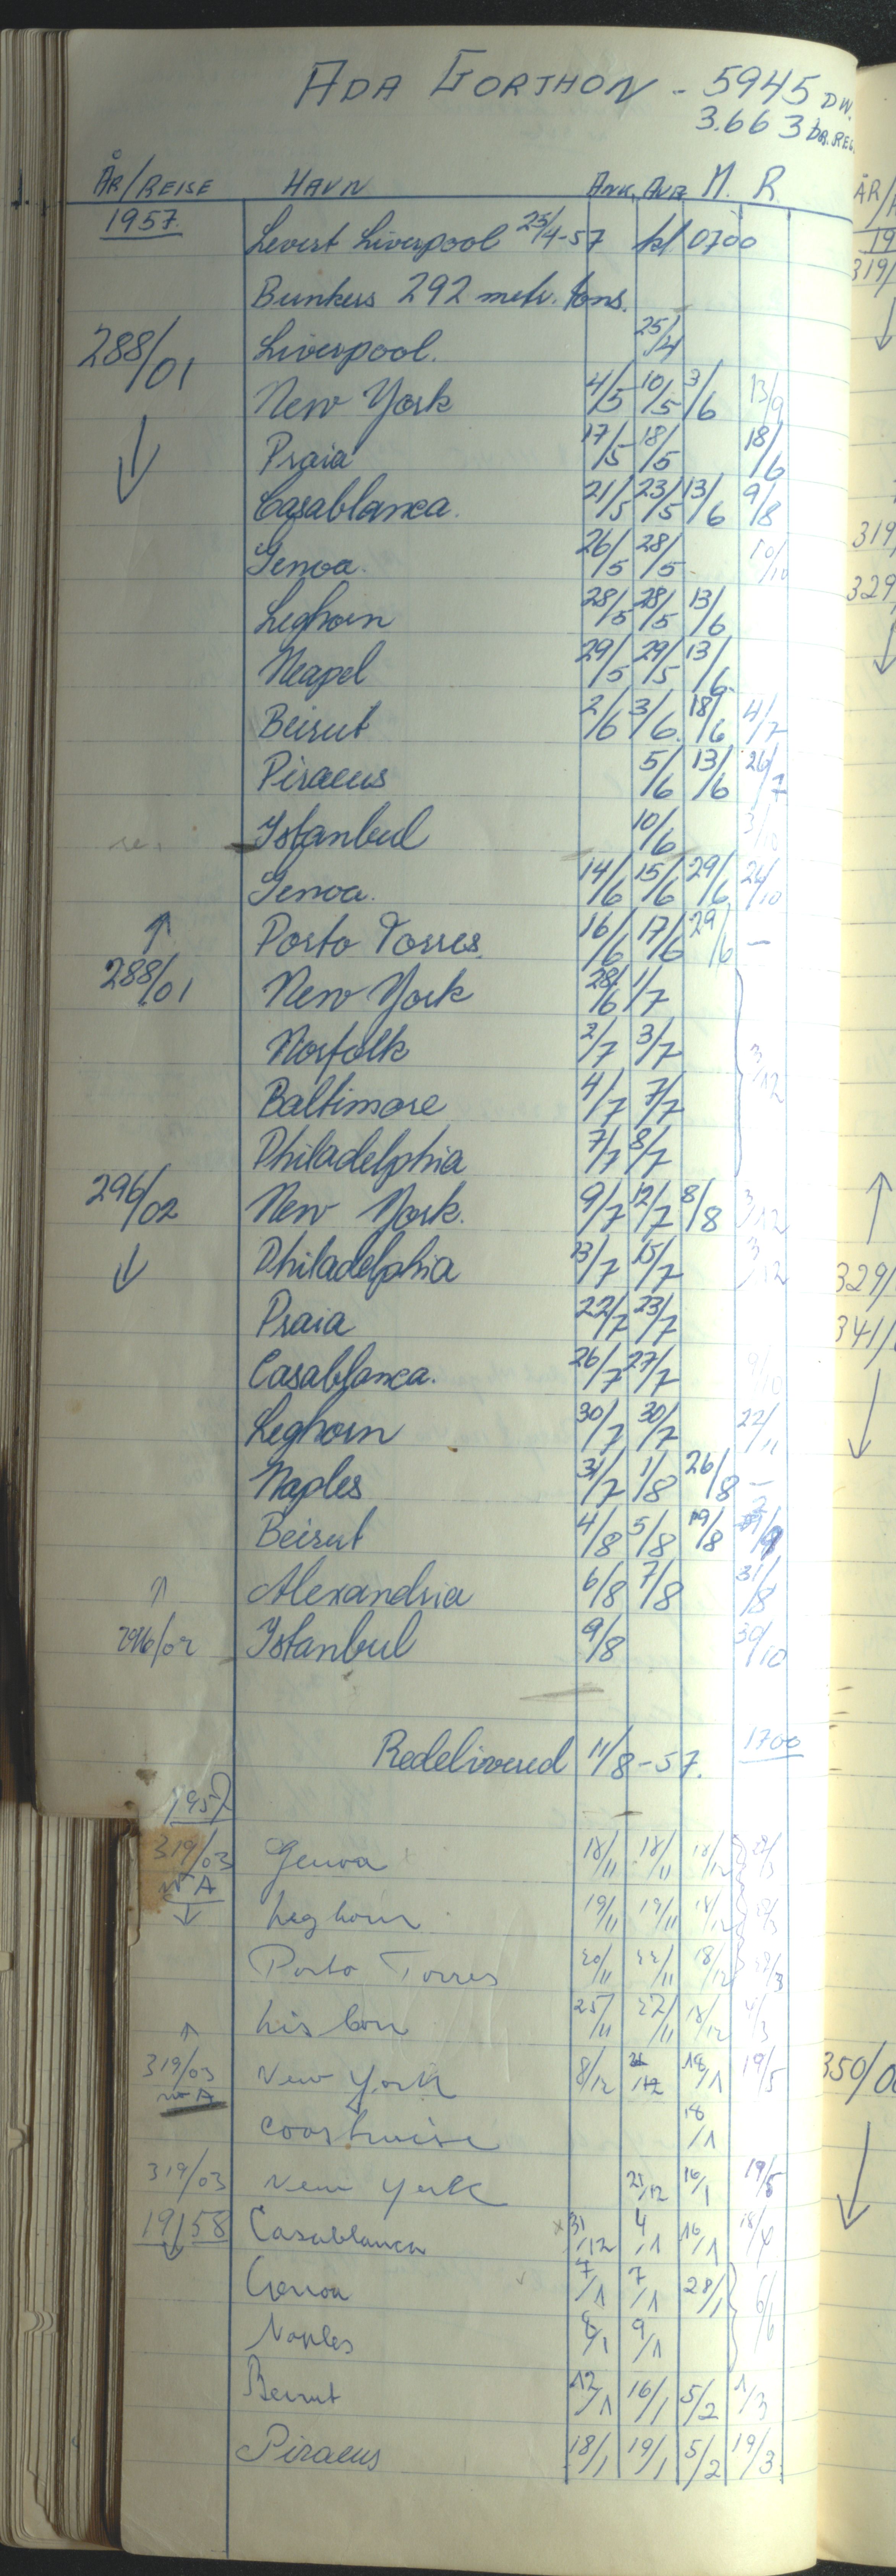 ADA GORTHON - 5945 DW.
3.663 BR.REG.
ÅR/REISE HAVN ANK. AVG. M. R.
1957. Levert Liverpool 25/4-57 kl 0700
Bunkers 292 metr. tons.
288/01 Liverpool. 25/4
New York 4/5 10/5 3/6 13/9
↓ Praia 17/5 18/5 18/6
Casablanca. 21/5 23/5 13/6 9/8
Genoa. 26/5 28/5 10/10
Leghorn 28/5 28/5 13/6
Neapel 29/5 29/5 13/6
Beirut 2/6 3/6 18/6 4/7
Piraeus 5/6 13/6 26/7
Istanbul 10/6 3/10
Genoa. 14/6 15/6 29/6 24/10
↑ Porto Torres. 16/6 17/6 29/6 —
288/01 New York 28/6 1/7
Norfolk 2/7 3/7 3/12
Baltimore 4/7 7/7
Philadelphia 7/7 8/7
296/02 New York. 9/7 12/7 8/8 3/12
↓ Philadelphia 13/7 15/7 3/12
Praia 22/7 23/7
Casablanca. 26/7 27/7 9/10
Leghorn 30/7 30/7 22/11
Naples 31/7 1/8 26/8 —
Beirut 4/8 5/8 19/8
↑ Alexandria 6/8 7/8 31/8
296/02 Istanbul 9/8 30/10
Redelivered 11/8-57. 1700
1957
319/03 Genoa 18/11 18/11 18/12
N A
↓ Leghorn 19/11 19/11 18/12
Porto Torres 20/11 22/11 18/12
↑ Lisbon 25/11 27/11 18/12 4/3
319/03 New York 8/12 18/1 19/5
N A
Coastwise 18/1
319/03 New York 21/12 16/1 19/5
1958 Casablanca x 31/12 4/1 16/1 18/4
↓ Genoa 7/1 7/1 28/1 6/6
Naples 8/1 9/1
Beirut 12/1 16/1 5/2 1/3
Piraeus 18/1 19/1 5/2 19/3
ÅR/
19
319/
↓
319,
329,
↓
↑
329/
341/
↓
350/0
↓